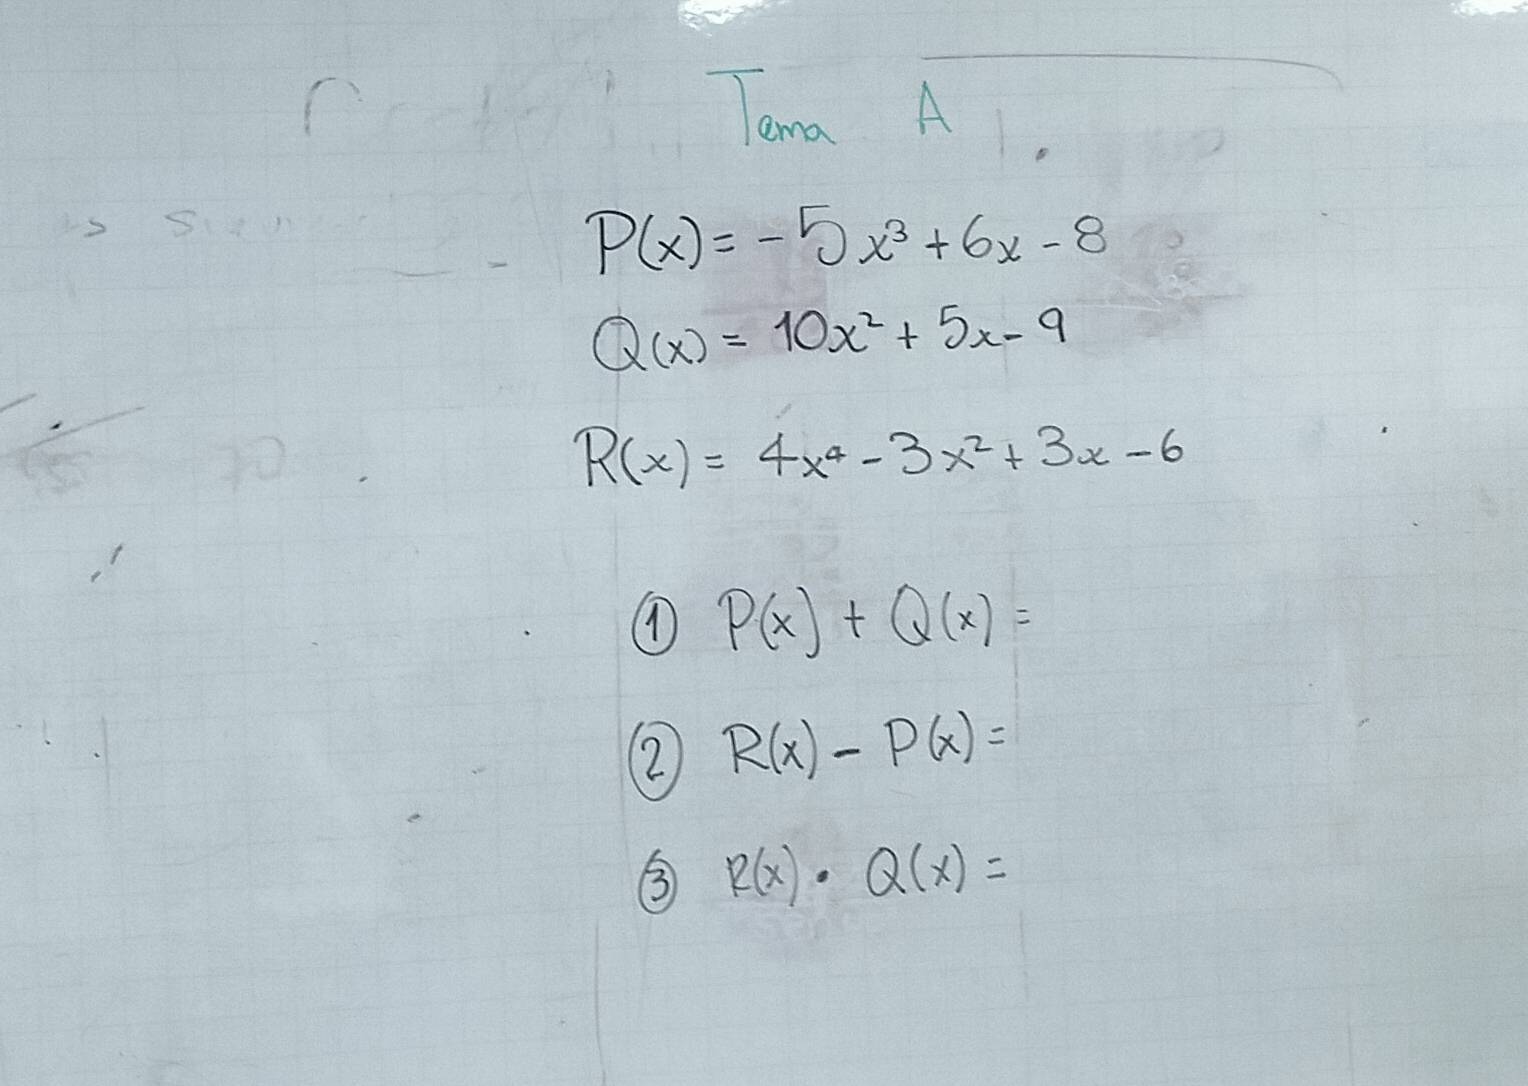 Tema A
P(x) = -5x³ + 6x - 8
Q(x) = 10x² + 5x - 9
R(x) = 4x⁴ - 3x² + 3x - 6
① P(x) + Q(x) =
② R(x) - P(x) =
③ R(x) · Q(x) =